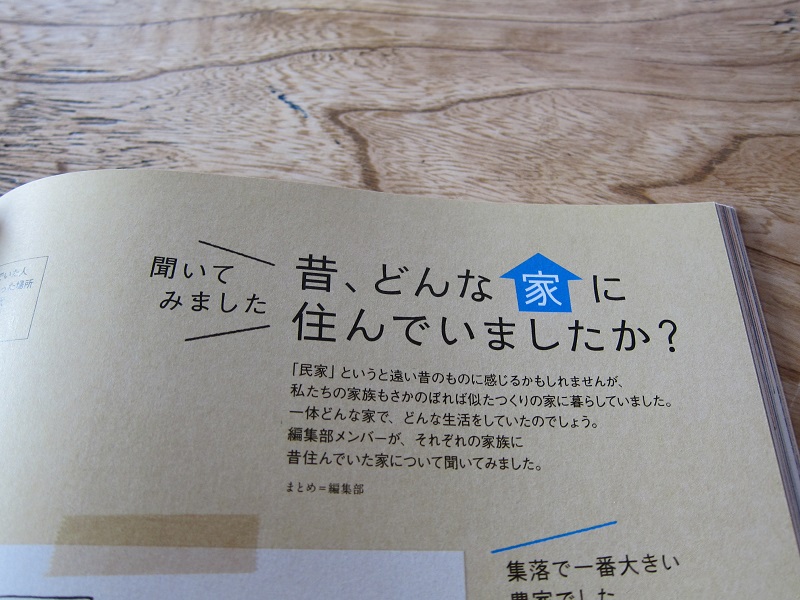 聞いて
みました
昔、どんな家に
住んでいましたか？
「民家」というと遠い昔のものに感じるかもしれませんが、
私たちの家族もさかのぼれば似たつくりの家に暮らしていました。
一体どんな家で、どんな生活をしていたのでしょう。
編集部メンバーが、それぞれの家族に
昔住んでいた家について聞いてみました。
まとめ＝編集部
集落で一番大きい
農家でした